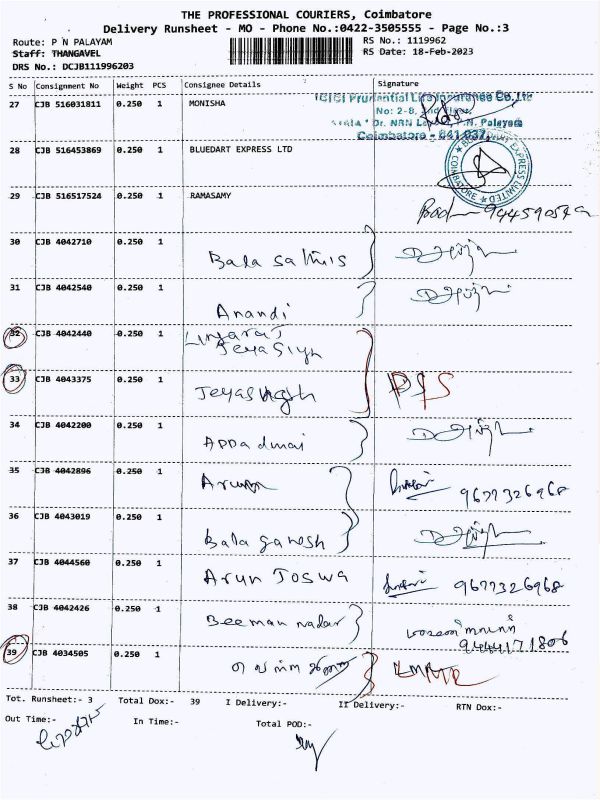 THE PROFESSIONAL COURIERS, Coimbatore
Delivery Runsheet - MO - Phone No.:0422-3505555 - Page No.:3
Route: P N PALAYAM
RS No.: 1119962
Staff: THANGAVEL
RS Date: 18-Feb-2023
DRS No.: DCJB111996203
S No Consignment No Weight PCS Consignee Details Signature
27 CJB 516031811 0.250 1 MONISHA
ICICI Prudential Life Insurance Co.Ltd
No: 2-8, 2nd Floor,
Dr. NRN P.N. Palayam
Coimbatore - 641 037
28 CJB 516453869 0.250 1 BLUEDART EXPRESS LTD
EXPRESS LIMITED ★ COIMBATORE ★
29 CJB 516517524 0.250 1 RAMASAMY
30 CJB 4042710 0.250 1 Bala Sathis
31 CJB 4042540 0.250 1 Anandi
32 CJB 4042440 0.250 1
33 CJB 4043375 0.250 1
34 CJB 4042200 0.250 1
35 CJB 4042896 0.250 1 Arunan 9677326968
36 CJB 4043019 0.250 1 Bala ganesh
37 CJB 4044560 0.250 1 Arun Joswa 9677326968
38 CJB 4042426 0.250 1 Beeman nadar 9444171806
39 CJB 4034505 0.250 1
Tot. Runsheet:- 3 Total Dox:- 39 I Delivery:- II Delivery:- RTN Dox:-
Out Time:- In Time:- Total POD:-